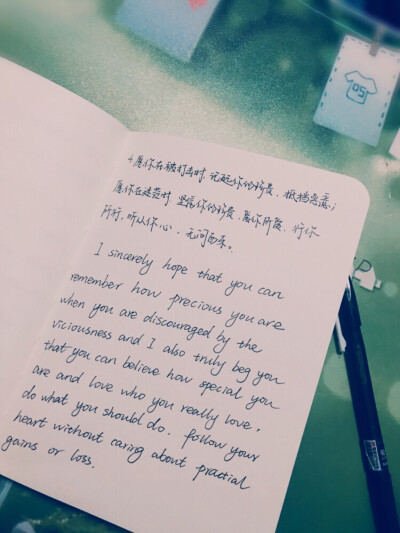 4.愿你在被打击时,记起你的珍贵,抵挡恶意;
愿你在迷茫时,坚信你的珍贵,爱你所爱,行你
所行,听从你心,无问西东。
I sincerely hope that you can
remember how precious you are
when you are discouraged by the
viciousness and I also truly beg you
that you can believe how special you
are and love who you really love,
do what you should do. follow your
heart without caring about practial
gains or loss.
05